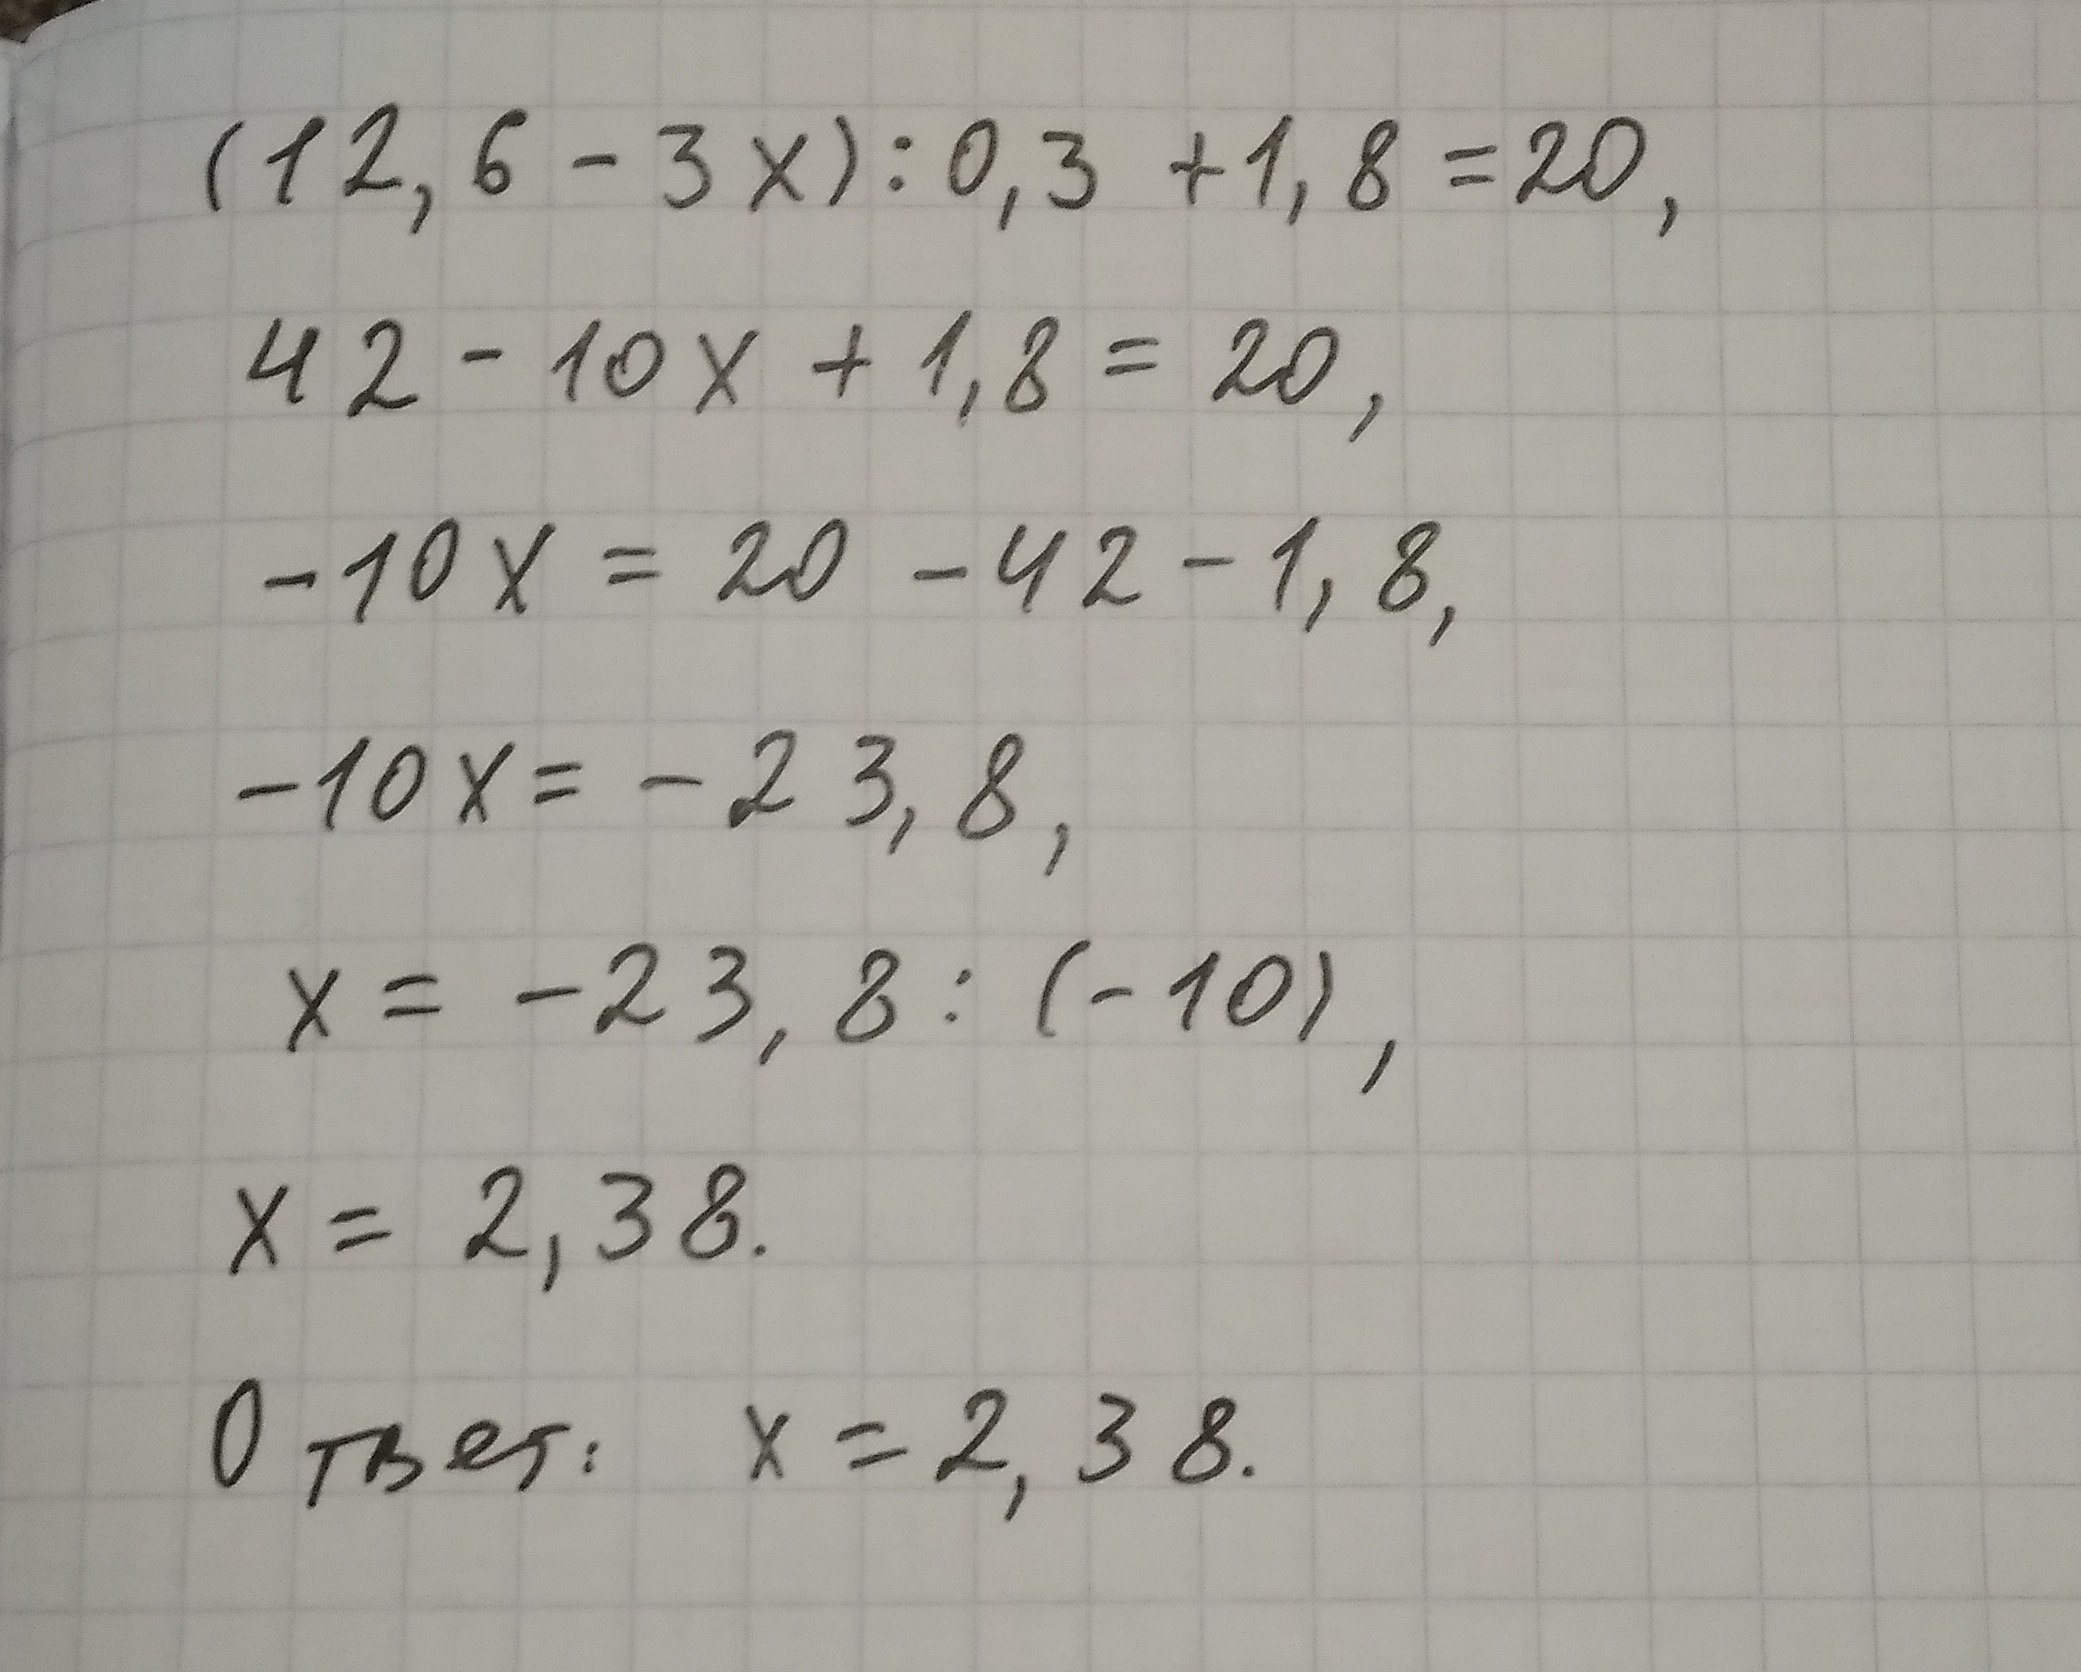 (12,6 - 3x) : 0,3 + 1,8 = 20,
42 - 10x + 1,8 = 20,
-10x = 20 - 42 - 1,8,
-10x = -23,8,
x = -23,8 : (-10),
x = 2,38.
Ответ: x = 2,38.